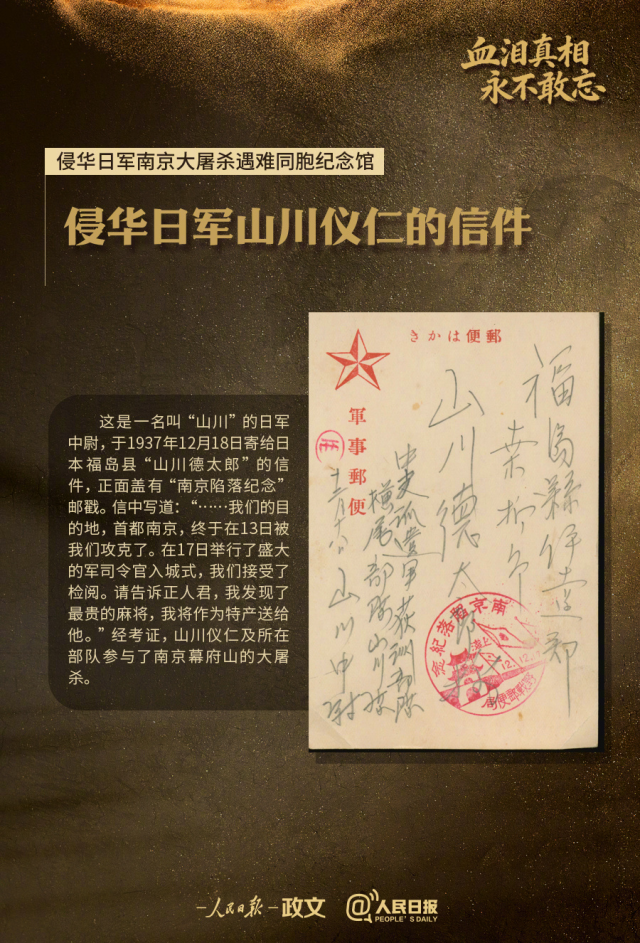 血泪真相
永不敢忘
侵华日军南京大屠杀遇难同胞纪念馆
侵华日军山川仪仁的信件
这是一名叫“山川”的日军
中尉，于1937年12月18日寄给日
本福岛县“山川德太郎”的信
件，正面盖有“南京陷落纪念”
邮戳。信中写道：“……我们的目
的地，首都南京，终于在13日被
我们攻克了。在17日举行了盛大
的军司令官入城式，我们接受了
检阅。请告诉正人君，我发现了
最贵的麻将，我将作为特产送给
他。”经考证，山川仪仁及所在
部队参与了南京幕府山的大屠
杀。
きかは便郵
軍事郵便
福島縣伊達郡
山川德太郎
中支派遣軍荻洲部隊
山川中尉
南京陷落紀念
12.12.
人民日报
政文
@人民日报
PEOPLE'S DAILY